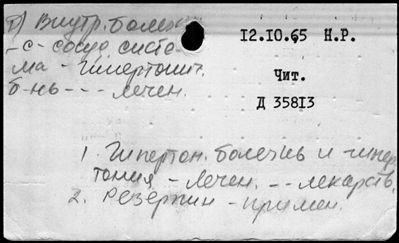 5) Внутр. болезн
-с- сосуд. систе
ма - Гипертонич.
б-нь - - - лечен.
12.10.65 Н.Р.
Чит.
Д 35813
1. Гипертон. болезнь и гипер
тония - лечен. - - лекарств.
2. Резерпин - примен.